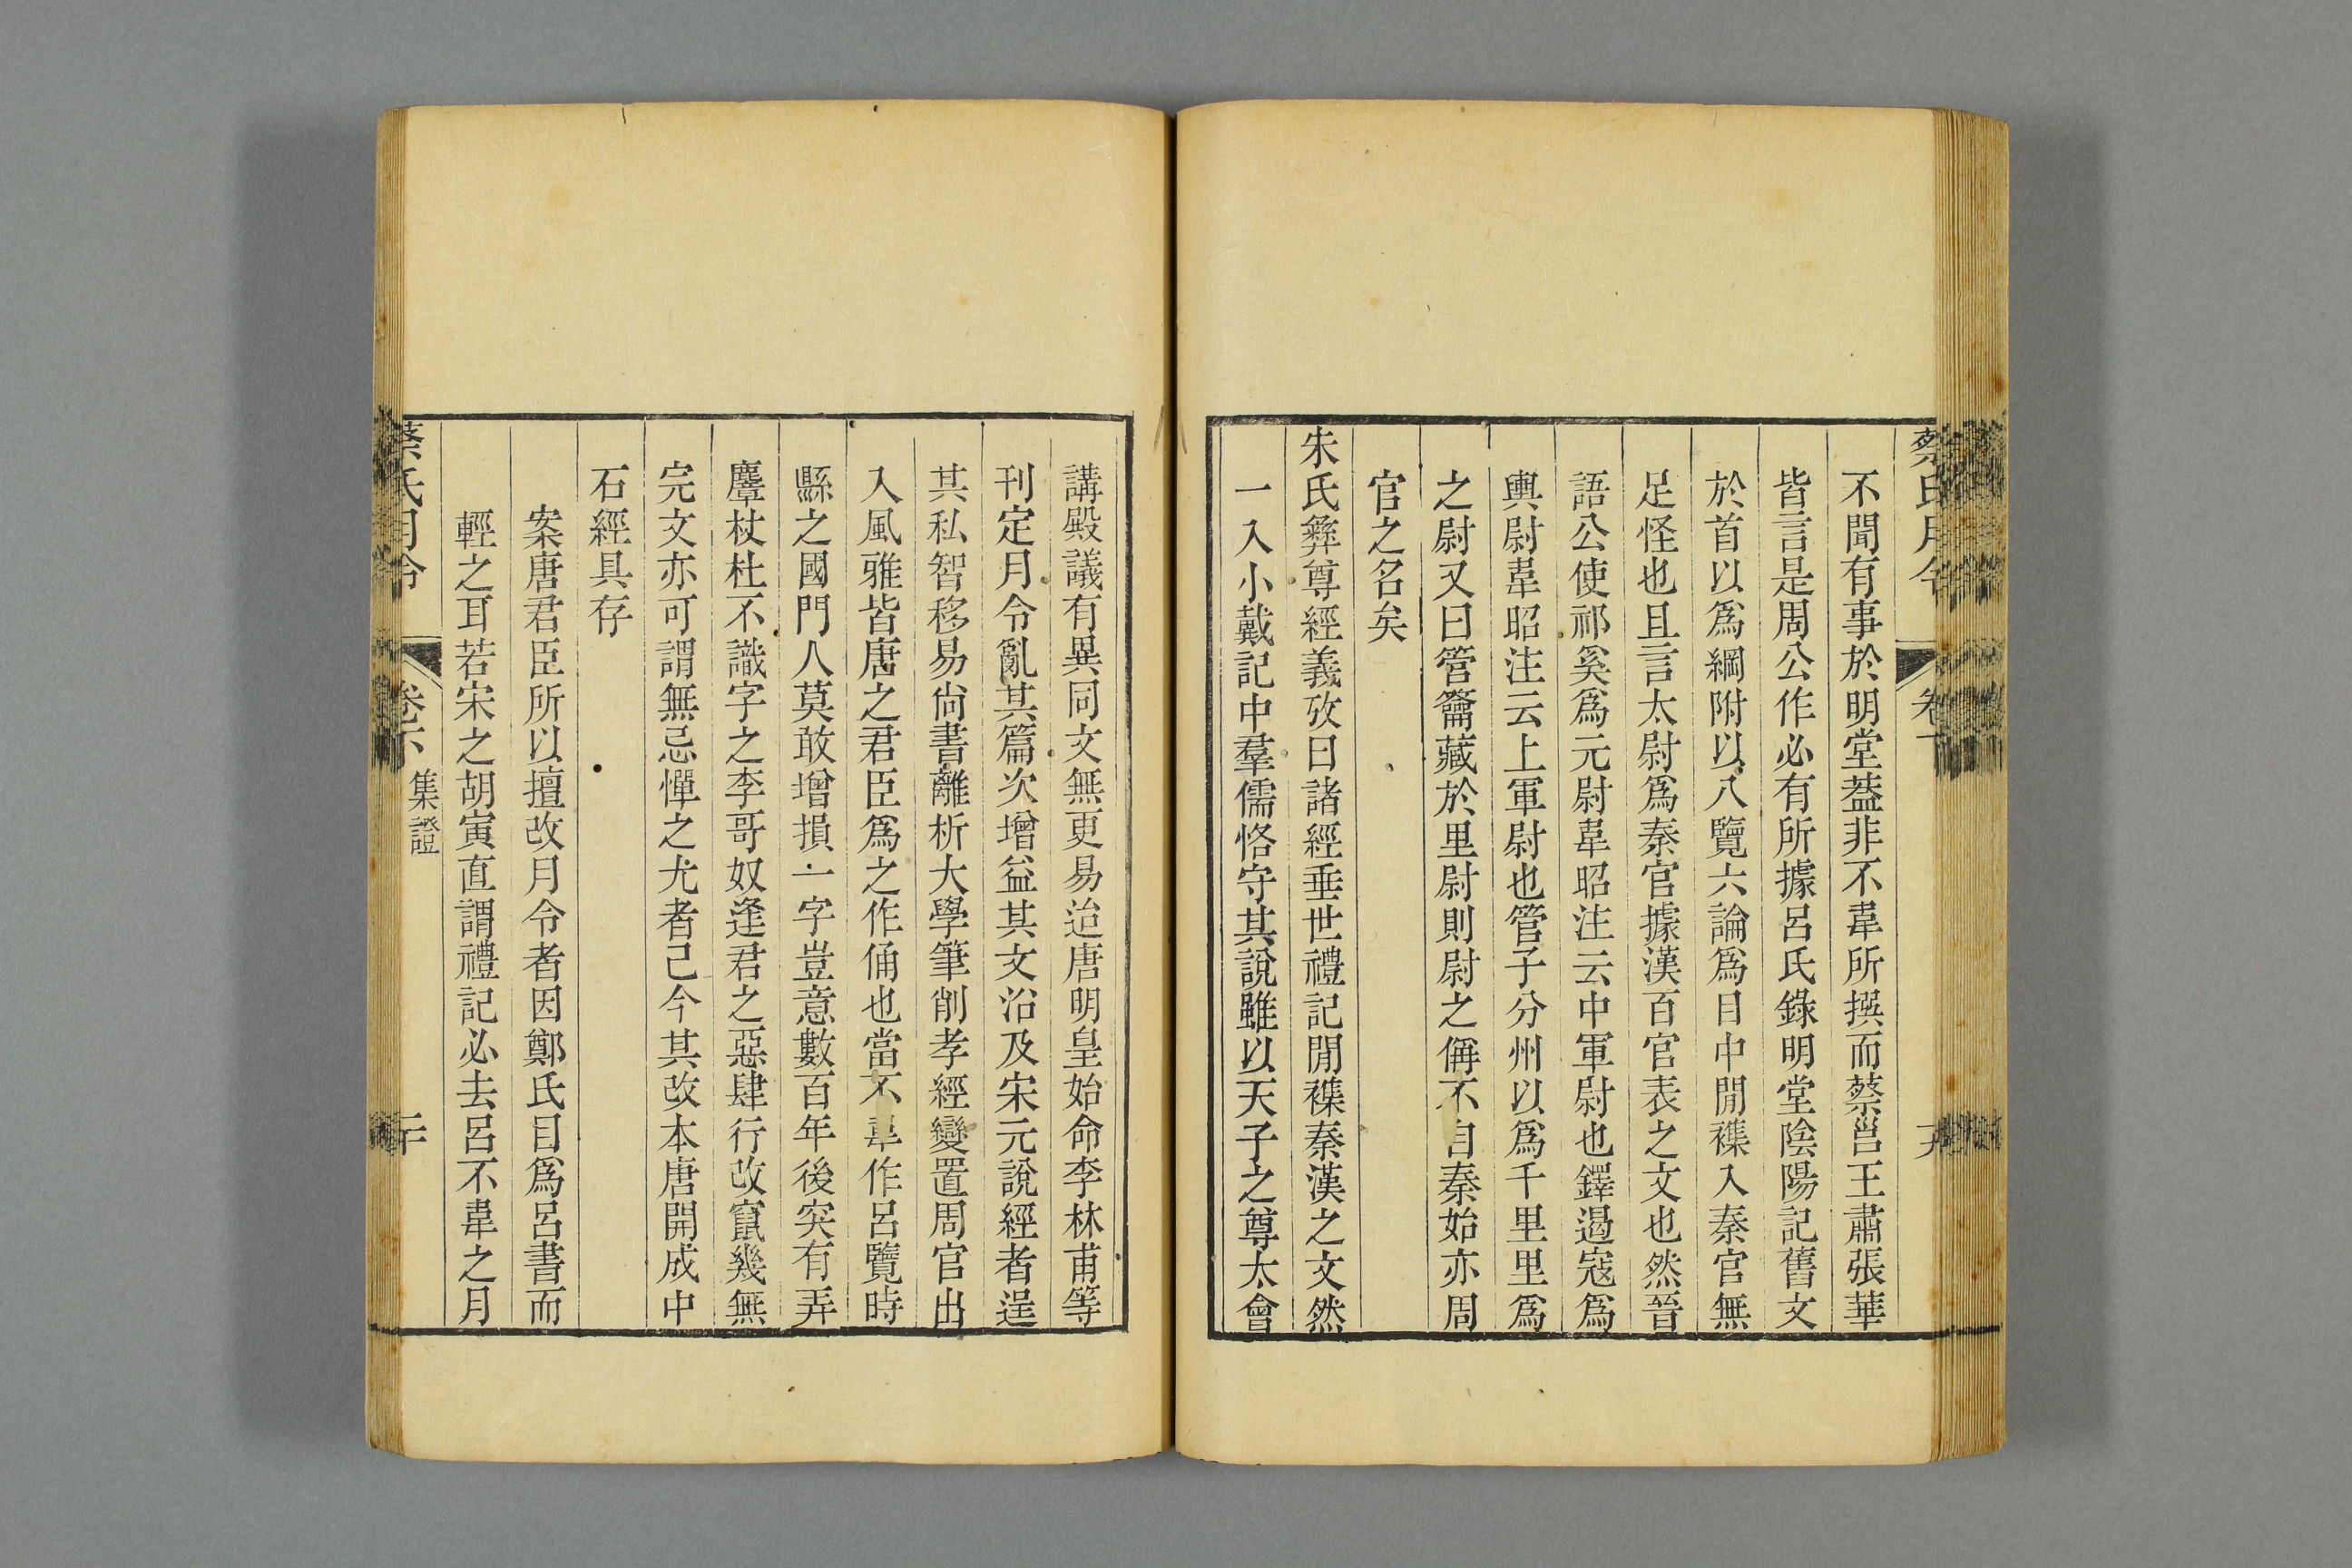 蔡氏月令
卷下
不聞有事於明堂葢非不韋所撰而蔡邕王肅張華
皆言是周公作必有所據呂氏錄明堂陰陽記舊文
於首以爲綱附以八覽六論爲目中閒襍入秦官無
足怪也且言太尉爲秦官據漢百官表之文也然晉
語公使祁奚爲元尉韋昭注云中軍尉也鐸遏寇爲
輿尉韋昭注云上軍尉也管子分州以爲千里里爲
之尉又曰管籥藏於里尉則尉之偁不自秦始亦周
官之名矣
朱氏彝尊經義攷曰諸經垂世禮記閒襍秦漢之文然
一入小戴記中羣儒恪守其說雖以天子之尊太會
講殿議有異同文無更易迨唐明皇始命李林甫等
刊定月令亂其篇次增益其文沿及宋元說經者逞
其私智移易尙書離析大學筆削孝經變置周官出
入風雅皆唐之君臣爲之作俑也當不韋作呂覽時
縣之國門人莫敢增損一字豈意數百年後突有弄
麞杖杜不識字之李哥奴逢君之惡肆行改竄幾無
完文亦可謂無忌憚之尤者已今其改本唐開成中
石經具存
案唐君臣所以擅改月令者因鄭氏目爲呂書而
輕之耳若宋之胡寅直謂禮記必去呂不韋之月
蔡氏月令
卷下
集證